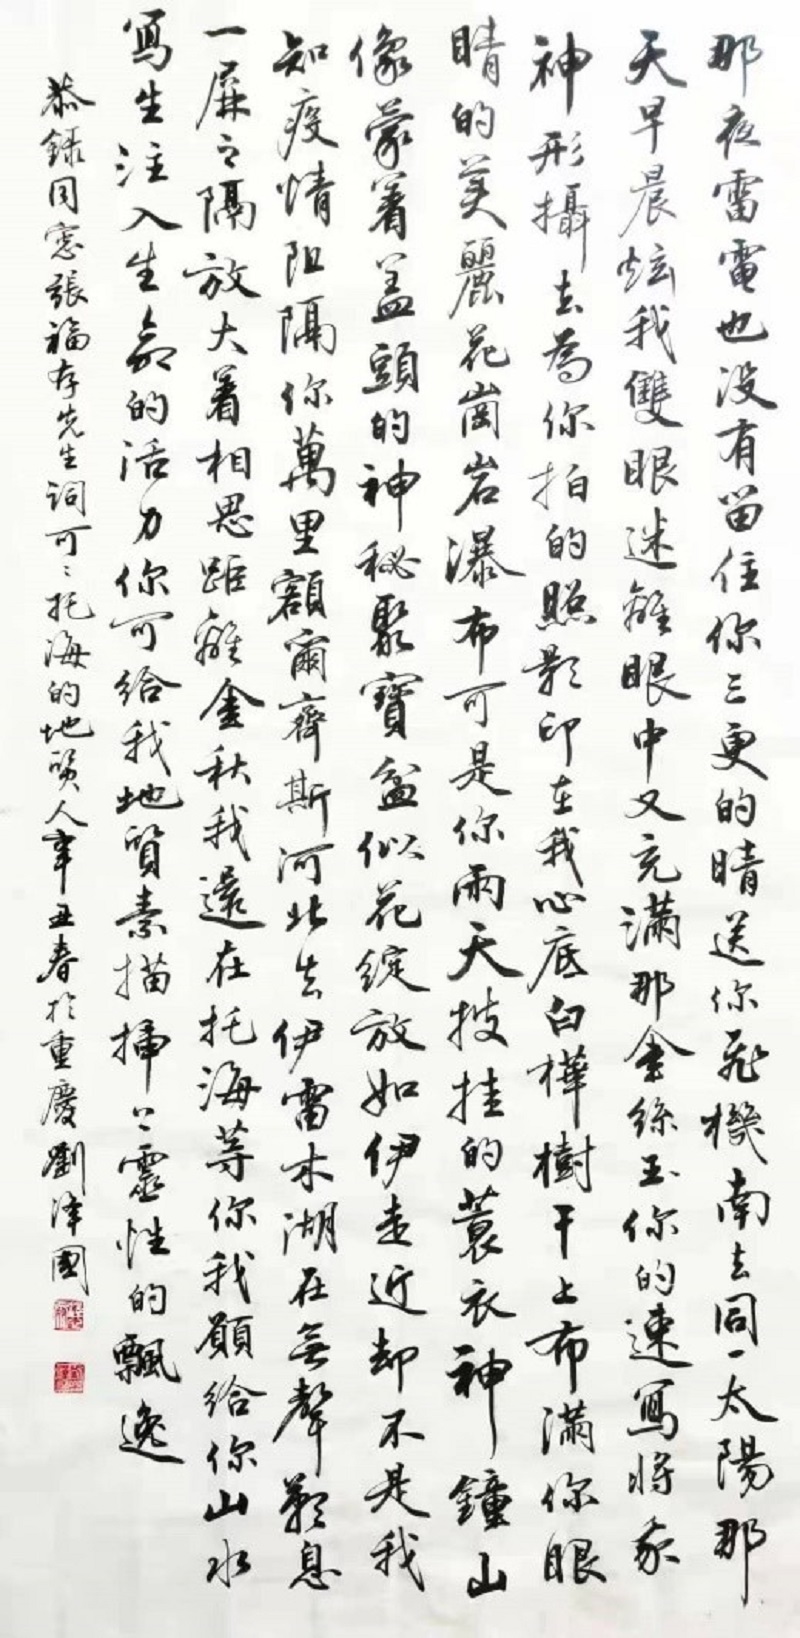 那夜雷電也没有留住你三更的晴送你飛機南去同一太陽那
天早晨炫我雙眼迷離眼中又充滿那金絲玉你的速寫將我
神形攝去為你拍的照影印在我心底白樺樹干上布滿你眼
睛的美麗花崗岩瀑布可是你雨天披挂的蓑衣神鐘山
像蒙着盖頭的神秘聚寶盆似花綻放如伊走近却不是我
知疫情阻隔你萬里額爾齊斯河北去伊雷木湖在無聲歎息
一屏之隔放大着相思距離金秋我還在托海等你我願給你山水
寫生注入生命的活力你可給我地質素描掃上靈性的飄逸
恭録同窓張福存先生詞可可托海的地質人辛丑春於重慶劉澤國